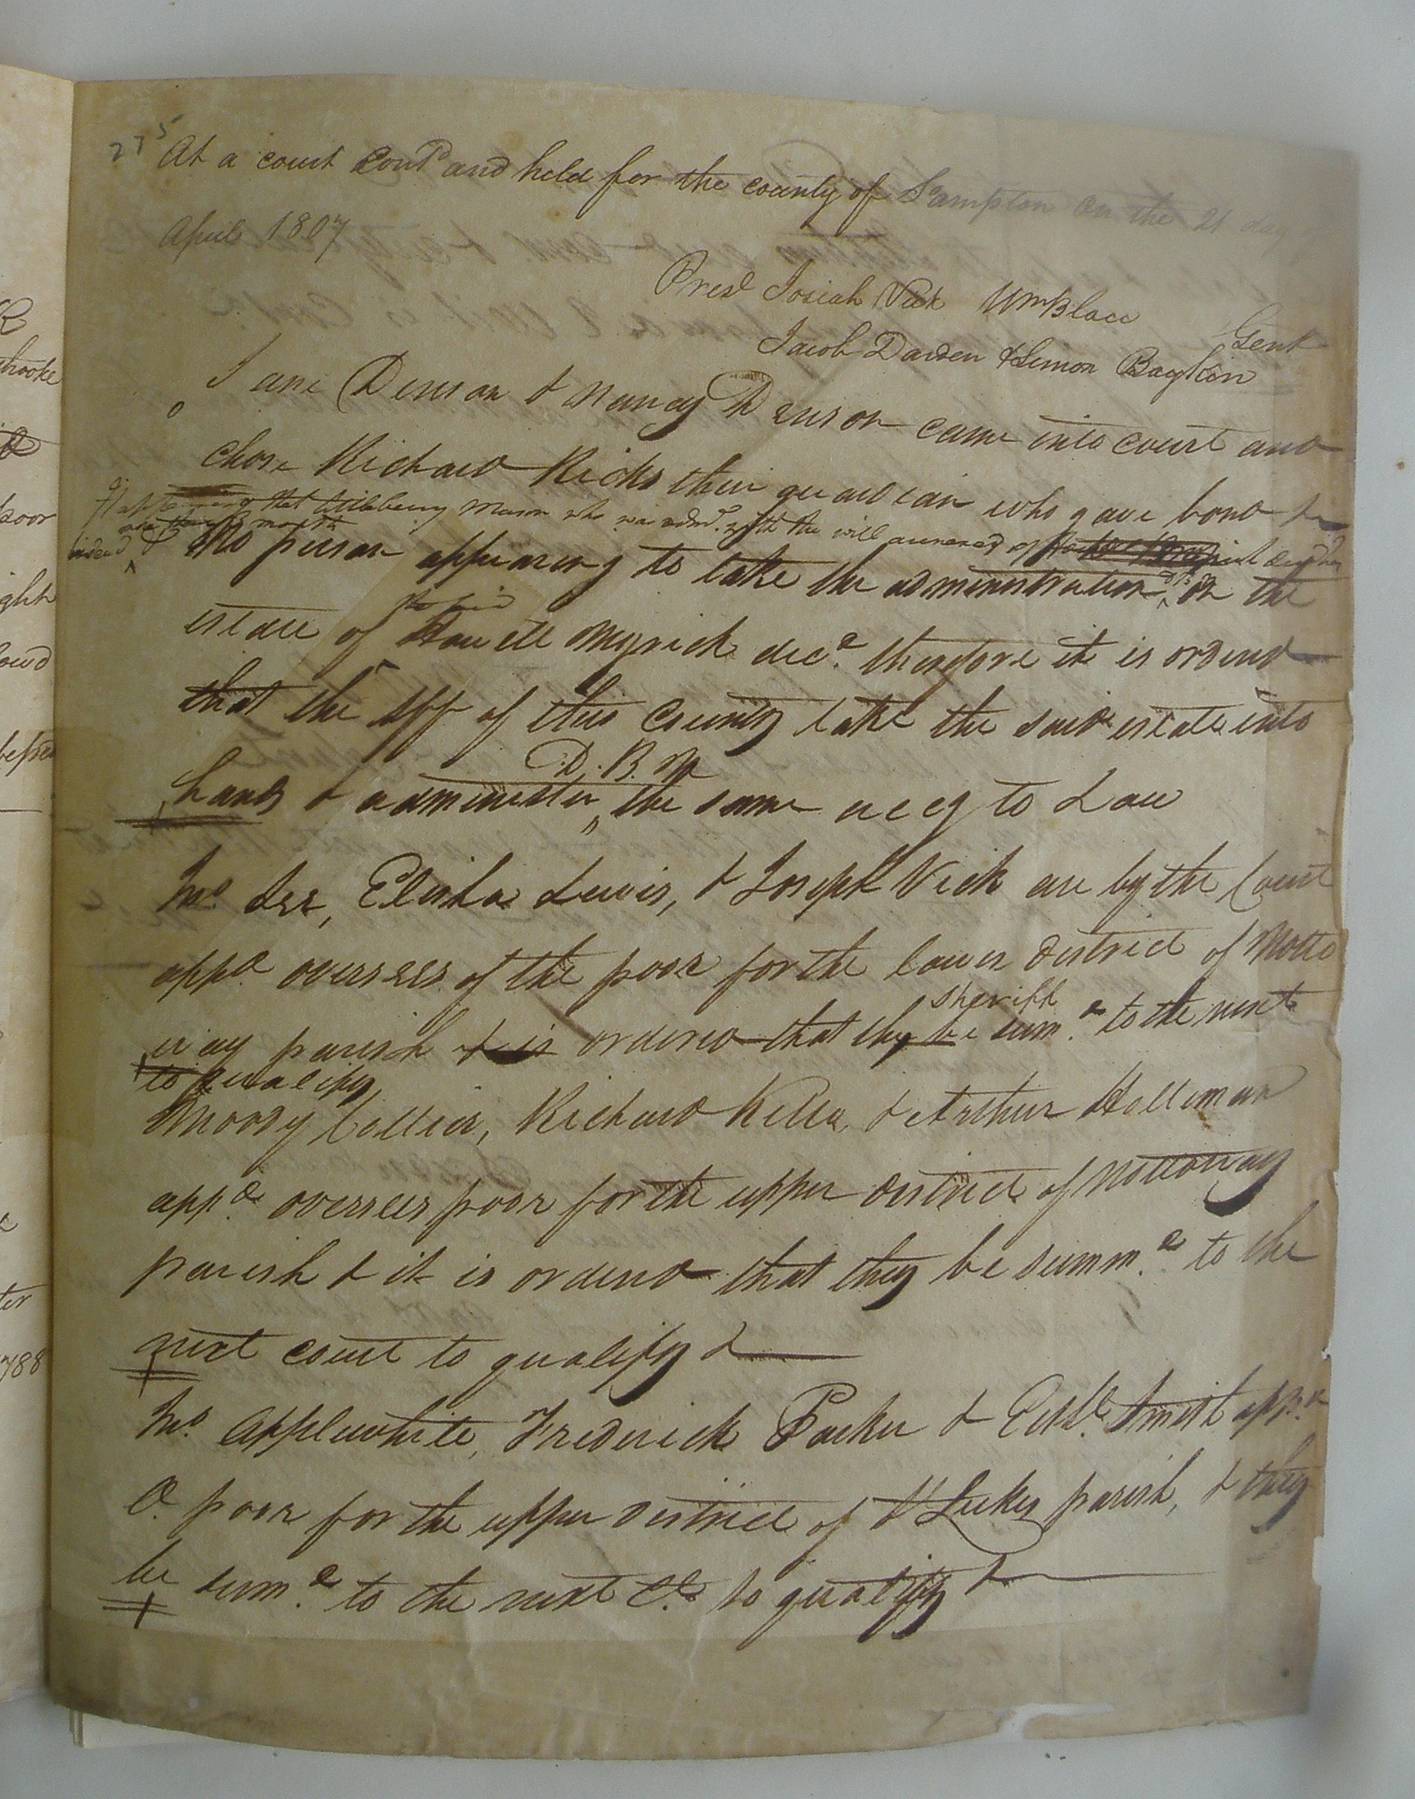 275
At a court Contd and held for the county of S'ampton on the 21 day
April 1807
Presd Josiah Vick Wm Blace Gent
Jacob Darden & Simon Boykin
Jane Denson & Nancy Denson came into court and
chose Richard Ricks their guardian who gave bond &
appearing that Littleberry Mason who was admr. with the will annexed of
No person appearing to take the administration on the
the said
estate of Howell Myrick decd. therefore it is ordered
that the Sff of this County take the said estate into
D. B. N
hands & administer the same accg to Law
Jno. Lee, Elisha Lewis, & Joseph Vick are by the Court
appd. overseers of the poor for the lower district of Notto
sheriff
way parish & is ordered that they be summd. to the next
to qualify
Moody Collier, Richard Kello, & Arthur Holleman
appd. overseers poor for the upper district of Nottoway
parish & it is ordered that they be summd. to the
next court to qualify &
Jno. Applewhite, Frederick Parker & Smith appd.
O. poor for the upper district of St Lukes parish, & they
be summd. to the next Ct. to qualify &